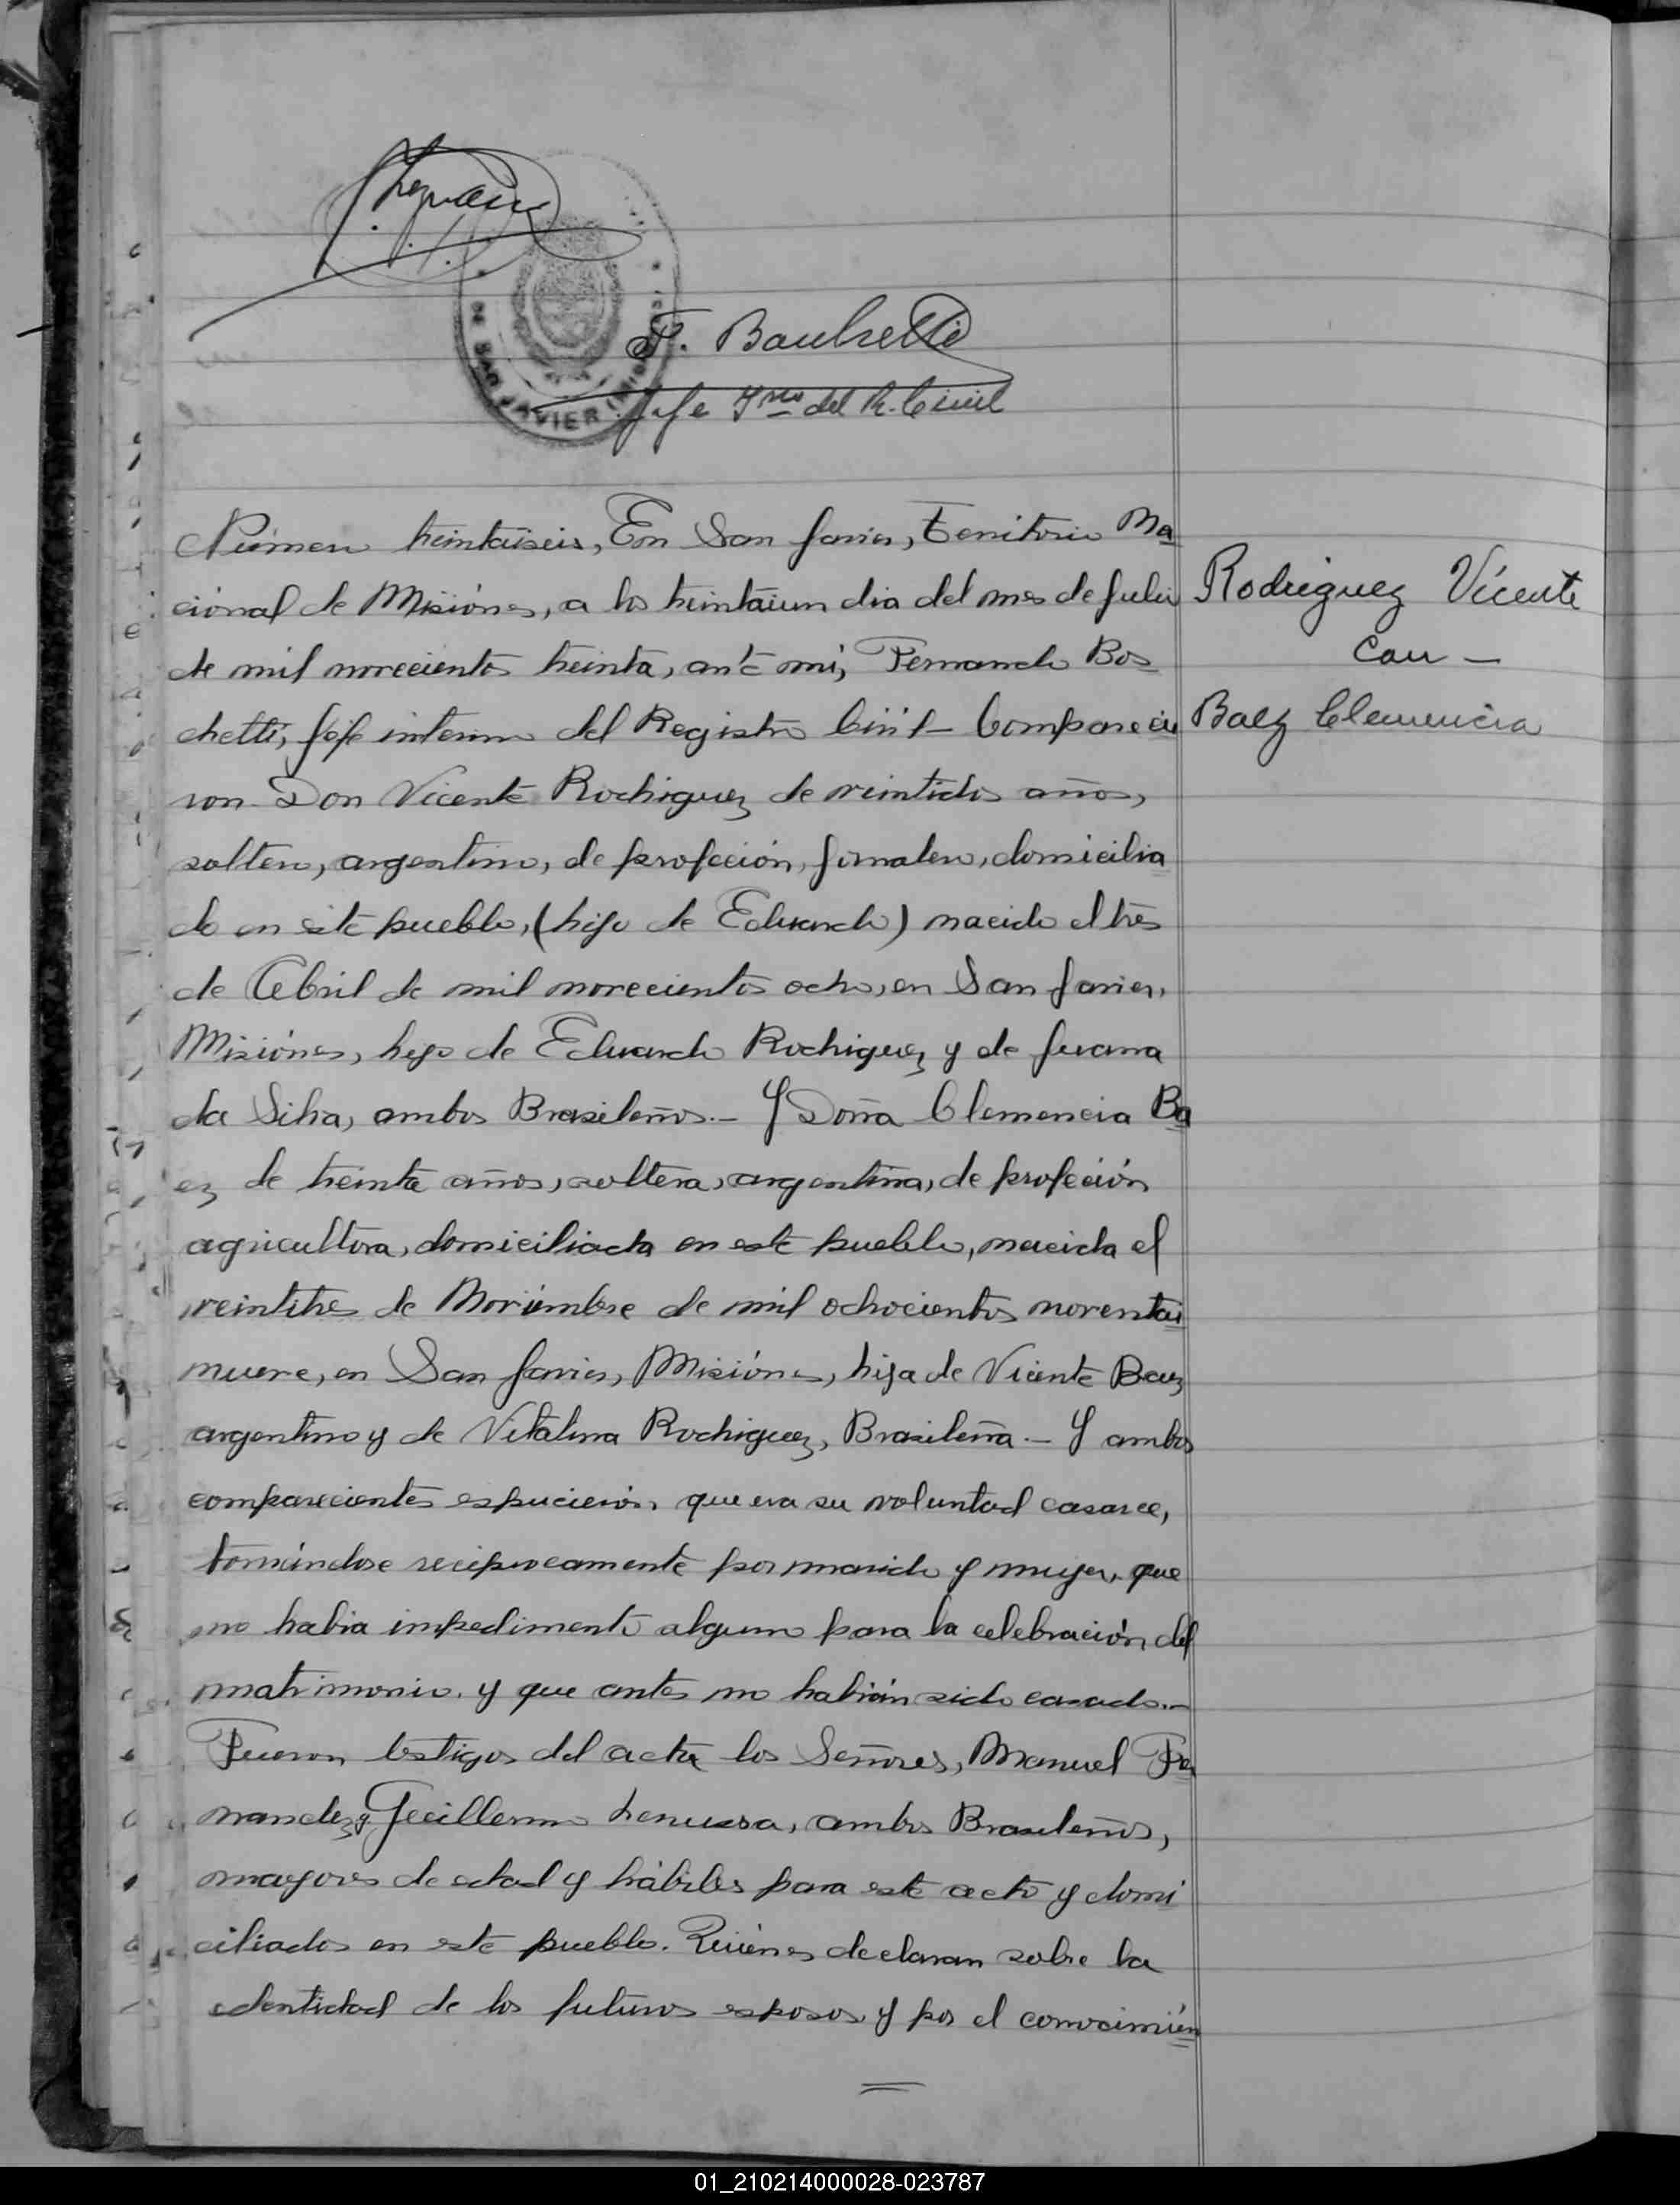 F. Boschetti
Jefe Ino del R. Civil
DE SAN JAVIER
Número treintaiseis, En San Javier, Territorio Na
cional de Misiónes, a los treintaiun dia del mes de Julio
de mil novecientos treinta, ante mi, Fernando Bos
chetti, Jefe interino del Registro Civil - Comparecie
ron Don Vicente Rodriguez de veintidos años,
soltero, argentino, de profeción, jornalero, domicilia
do en este pueblo, (hijo de Eduardo) nacido el tres
de Abril de mil novecientos ocho, en San Javier,
Misiónes, hijo de Eduardo Rodriguez y de Juana
da Silva, ambos Brasileños.- Y Doña Clemencia Ba
ez de treinta años, soltera, argentina, de profeción
agricultora, domiciliada en este pueblo, nacida el
veintitres de Noviembre de mil ochocientos noventai
nueve, en San Javier, Misiónes, hija de Vicente Baez
argentino y de Vitalina Rodriguez, Brasileña.- Y ambos
comparecientes espucierón, que era su voluntad casarce,
tomándose reciprocamente por marido y mujer, que
no habia impedimento alguno para la celebración del
matrimonio. y que antes no habián sido casado.-
Fueron testigos del acta los Señores, Manuel Fer
nandez y Guillermo, ambos Brasileños,
mayores de edad y hábiles para este acto y domi
ciliados en este pueblo. Quiénes declaran sobre la
identidad de los futuros esposos y por el conocimién
Rodriguez Vicente
Con -
Baez Clemencia
01_210214000028-023787